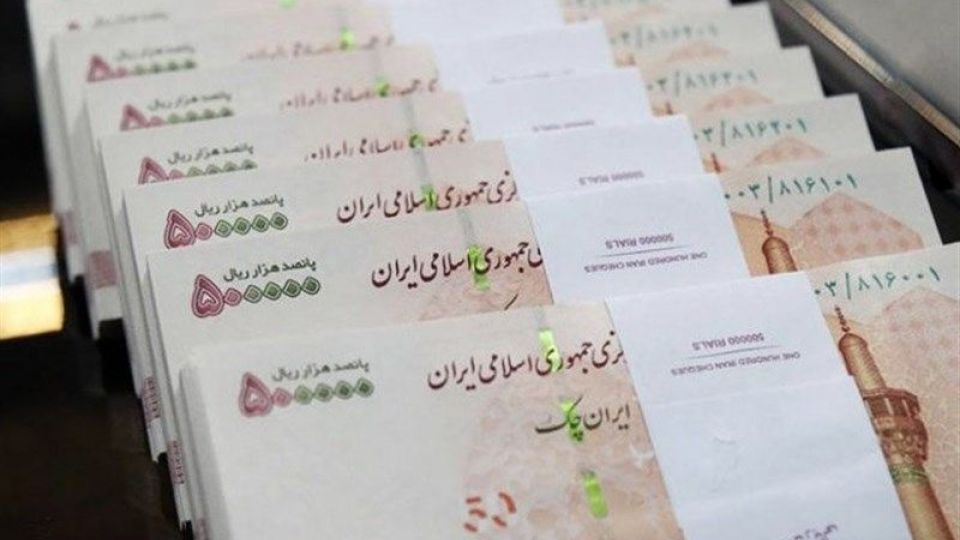 پانصد هزار ریال
پانصد هزار ریال
جمهوری اسلامی ایران
/۸۱۶۳۰۱
پانصد هزار ریال
جمهوری اسلامی ایران
۰۳/۸۱۶۲۰۱
پانصد هزار ریال
۵۰۰۰۰۰
زی جمهوری اسلامی ایران
500000 RIALS
۰۰۳/۸۱۶۱۰۱
پانصد هزار ریال
۵۰۰۰۰۰
جمهوری اسلامی ایران
چک
ONE HUNDRED IRAN CHEQUES
500000 RIALS
۳/۸۱۶۰۰۱
پانصد هزار ریال
۵۰۰۰۰۰
کزی جمهوری اسلامی ایران
ایران چک
ONE HUNDRED IRAN CHEQUES
500000 RIALS